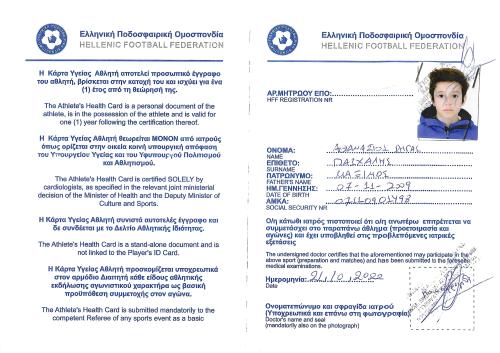 Ελληνική Ποδοσφαιρική Ομοσπονδία
HELLENIC FOOTBALL FEDERATION
Η Κάρτα Υγείας Αθλητή αποτελεί προσωπικό έγγραφο
του αθλητή, βρίσκεται στην κατοχή του και ισχύει για ένα
(1) έτος από τη θεώρησή της.
The Athlete's Health Card is a personal document of the
athlete, is in the possession of the athlete and is valid for
one (1) year following the certification thereof.
Η Κάρτα Υγείας Αθλητή θεωρείται ΜΟΝΟΝ από ιατρούς
όπως ορίζεται στην οικεία κοινή υπουργική απόφαση
του Υπουργείου Υγείας και του Υφυπουργού Πολιτισμού
και Αθλητισμού.
The Athlete's Health Card is certified SOLELY by
cardiologists, as specified in the relevant joint ministerial
decision of the Minister of Health and the Deputy Minister of
Culture and Sports.
Η Κάρτα Υγείας Αθλητή συνιστά αυτοτελές έγγραφο και
δε συνδέεται με το Δελτίο Αθλητικής Ιδιότητας.
The Athlete's Health Card is a stand-alone document and is
not linked to the Player's ID Card.
Η Κάρτα Υγείας Αθλητή προσκομίζεται υποχρεωτικά
στον αρμόδιο Διαιτητή κάθε είδους αθλητικής
εκδήλωσης αγωνιστικού χαρακτήρα ως βασική
προϋπόθεση συμμετοχής στον αγώνα.
The Athlete's Health Card is submitted mandatorily to the
competent Referee of any sports event as a basic
Ελληνική Ποδοσφαιρική Ομοσπονδία
HELLENIC FOOTBALL FEDERATION
ΑΡ.ΜΗΤΡΩΟΥ ΕΠΟ:
HFF REGISTRATION NR
ΟΝΟΜΑ: ΑΘΑΝΑΣΙΟΣ ΡΗΓΑΣ
NAME
ΕΠΙΘΕΤΟ: ΠΑΣΧΑΛΗΣ
SURNAME
ΠΑΤΡΩΝΥΜΟ: ΜΑΞΙΜΟΣ
FATHER'S NAME
ΗΜ.ΓΕΝΝΗΣΗΣ: 07-11-2009
DATE OF BIRTH
ΑΜΚΑ:
SOCIAL SECURITY NR
Ο/η κάτωθι ιατρός πιστοποιεί ότι ο/η ανωτέρω επιτρέπεται να
συμμετάσχει στο παραπάνω άθλημα (προετοιμασία και
αγώνες) και έχει υποβληθεί στις προβλεπόμενες ιατρικές
εξετάσεις
The undersigned doctor certifies that the aforementioned may participate in the
above sport (preparation and matches) and has been submitted to the foreseen
medical examinations.
Ημερομηνία: 21/10/2020
Date
Ονοματεπώνυμο και σφραγίδα ιατρού
(Υποχρεωτικά και επάνω στη φωτογραφία)
Doctor's name and seal
(mandatorily also on the photograph)